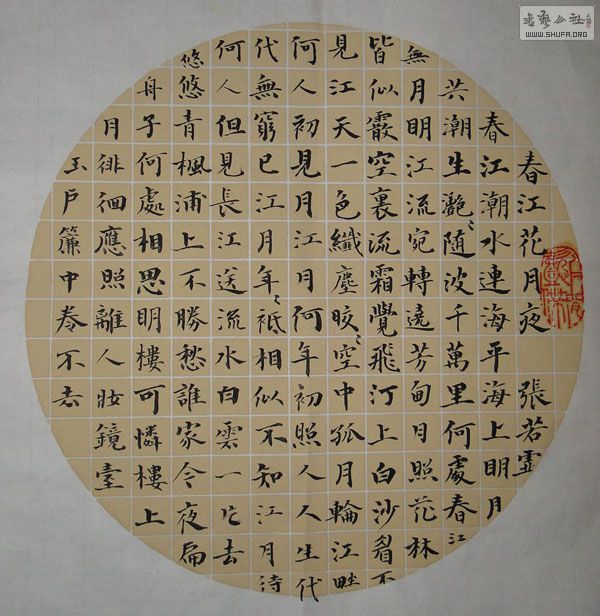 春江花月夜 張若虛
春江潮水連海平海上明月
共潮生灔〻隨波千萬里何處春江
無月明江流宛轉遶芳甸月照花林
皆似霰空裏流霜覺飛汀上白沙看不
見江天一色纖塵皎〻空中孤月輪江畔
何人初見月江月何年初照人人生代
代無窮已江月年〻祗相似不知江月待
何人但見長江送流水白雲一片去
悠悠青楓浦上不勝愁誰家今夜扁
舟子何處相思明樓可憐樓上
月徘徊應照離人妝鏡臺
玉戶簾中卷不去
書藝公社
WWW.SHUFA.ORG